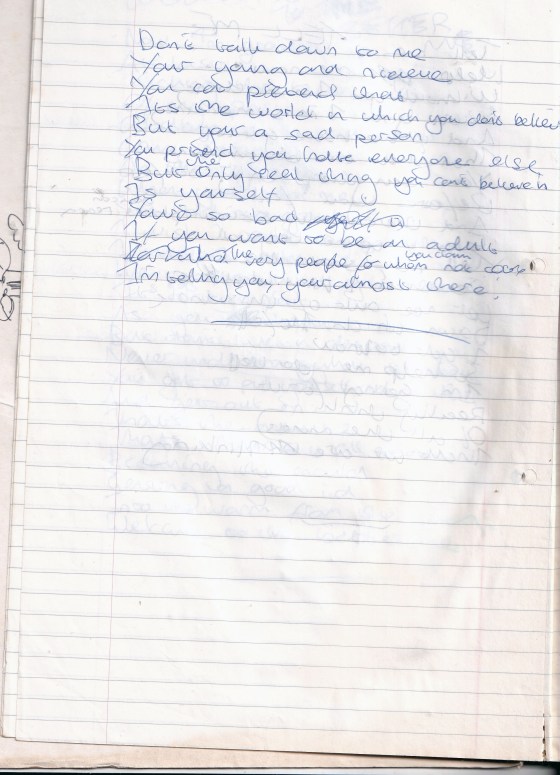 Don't talk down to me
Your young and nieave
You can pretend that
It's the world in which you don't believe
But your a sad person
You pretend you hate everyone else
But the Only real thing you can't believe in
Is yourself
You're so bad
If you want to be an adult
the very people for whom you claim not
I'm telling you, your almost there.